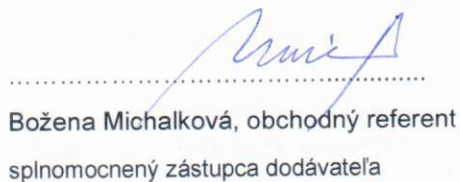 Božena Michalková, obchodný referent
splnomocnený zástupca dodávateľa